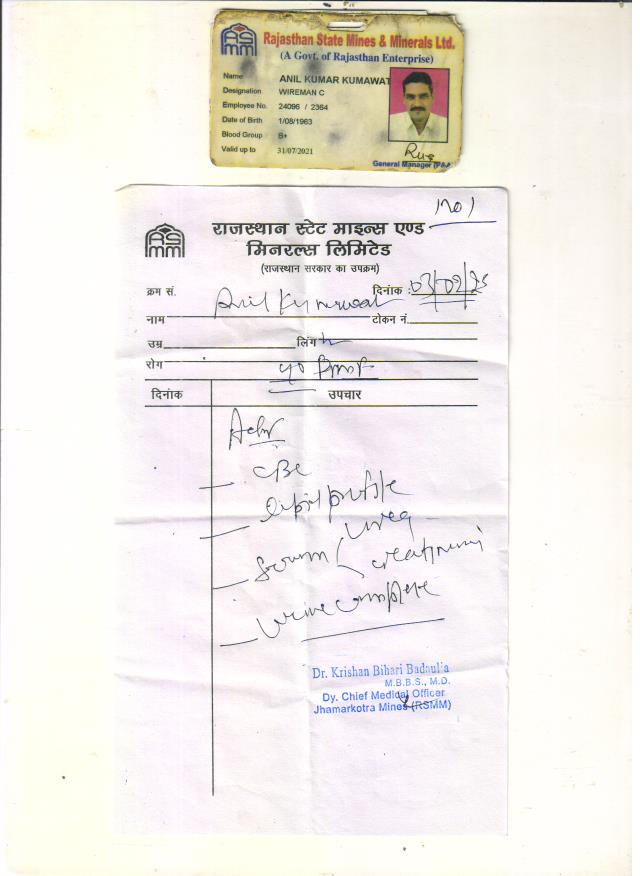 RSMM
Rajasthan State Mines & Minerals Ltd.
(A Govt. of Rajasthan Enterprise)
Name ANIL KUMAR KUMAWAT
Designation WIREMAN C
Employee No. 24096 / 2364
Date of Birth 1/08/1963
Blood Group B+
Valid up to 31/07/2021
General Manager (P&A
RSMM
राजस्थान स्टेट माइन्स एण्ड
मिनरल्स लिमिटेड
(राजस्थान सरकार का उपक्रम)
क्रम सं. दिनांक :
नाम Anil टोकन नं.
उम्र लिंग
रोग
दिनांक उपचार
Adv
CBC
lipid profile
urea
serum creatinine
urine complete
Dr. Krishan Bihari Badaulia
M.B.B.S., M.D.
Dy. Chief Medical Officer
Jhamarkotra Mines (RSMM)